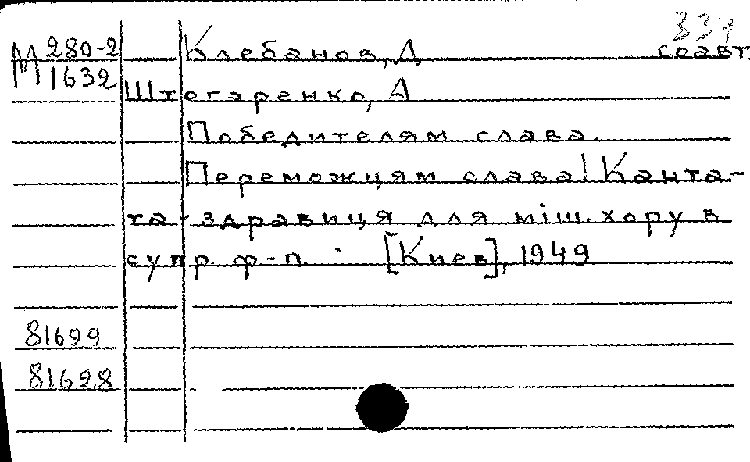 337
М 280-2 Клебанов, Д соавт.
М 1632 Штогаренко, А
Победителям слава.
Переможцям слава!Канта-
та-здравиця для міш. хору в
супр. ф-п. [Киев], 1949
81699
81698